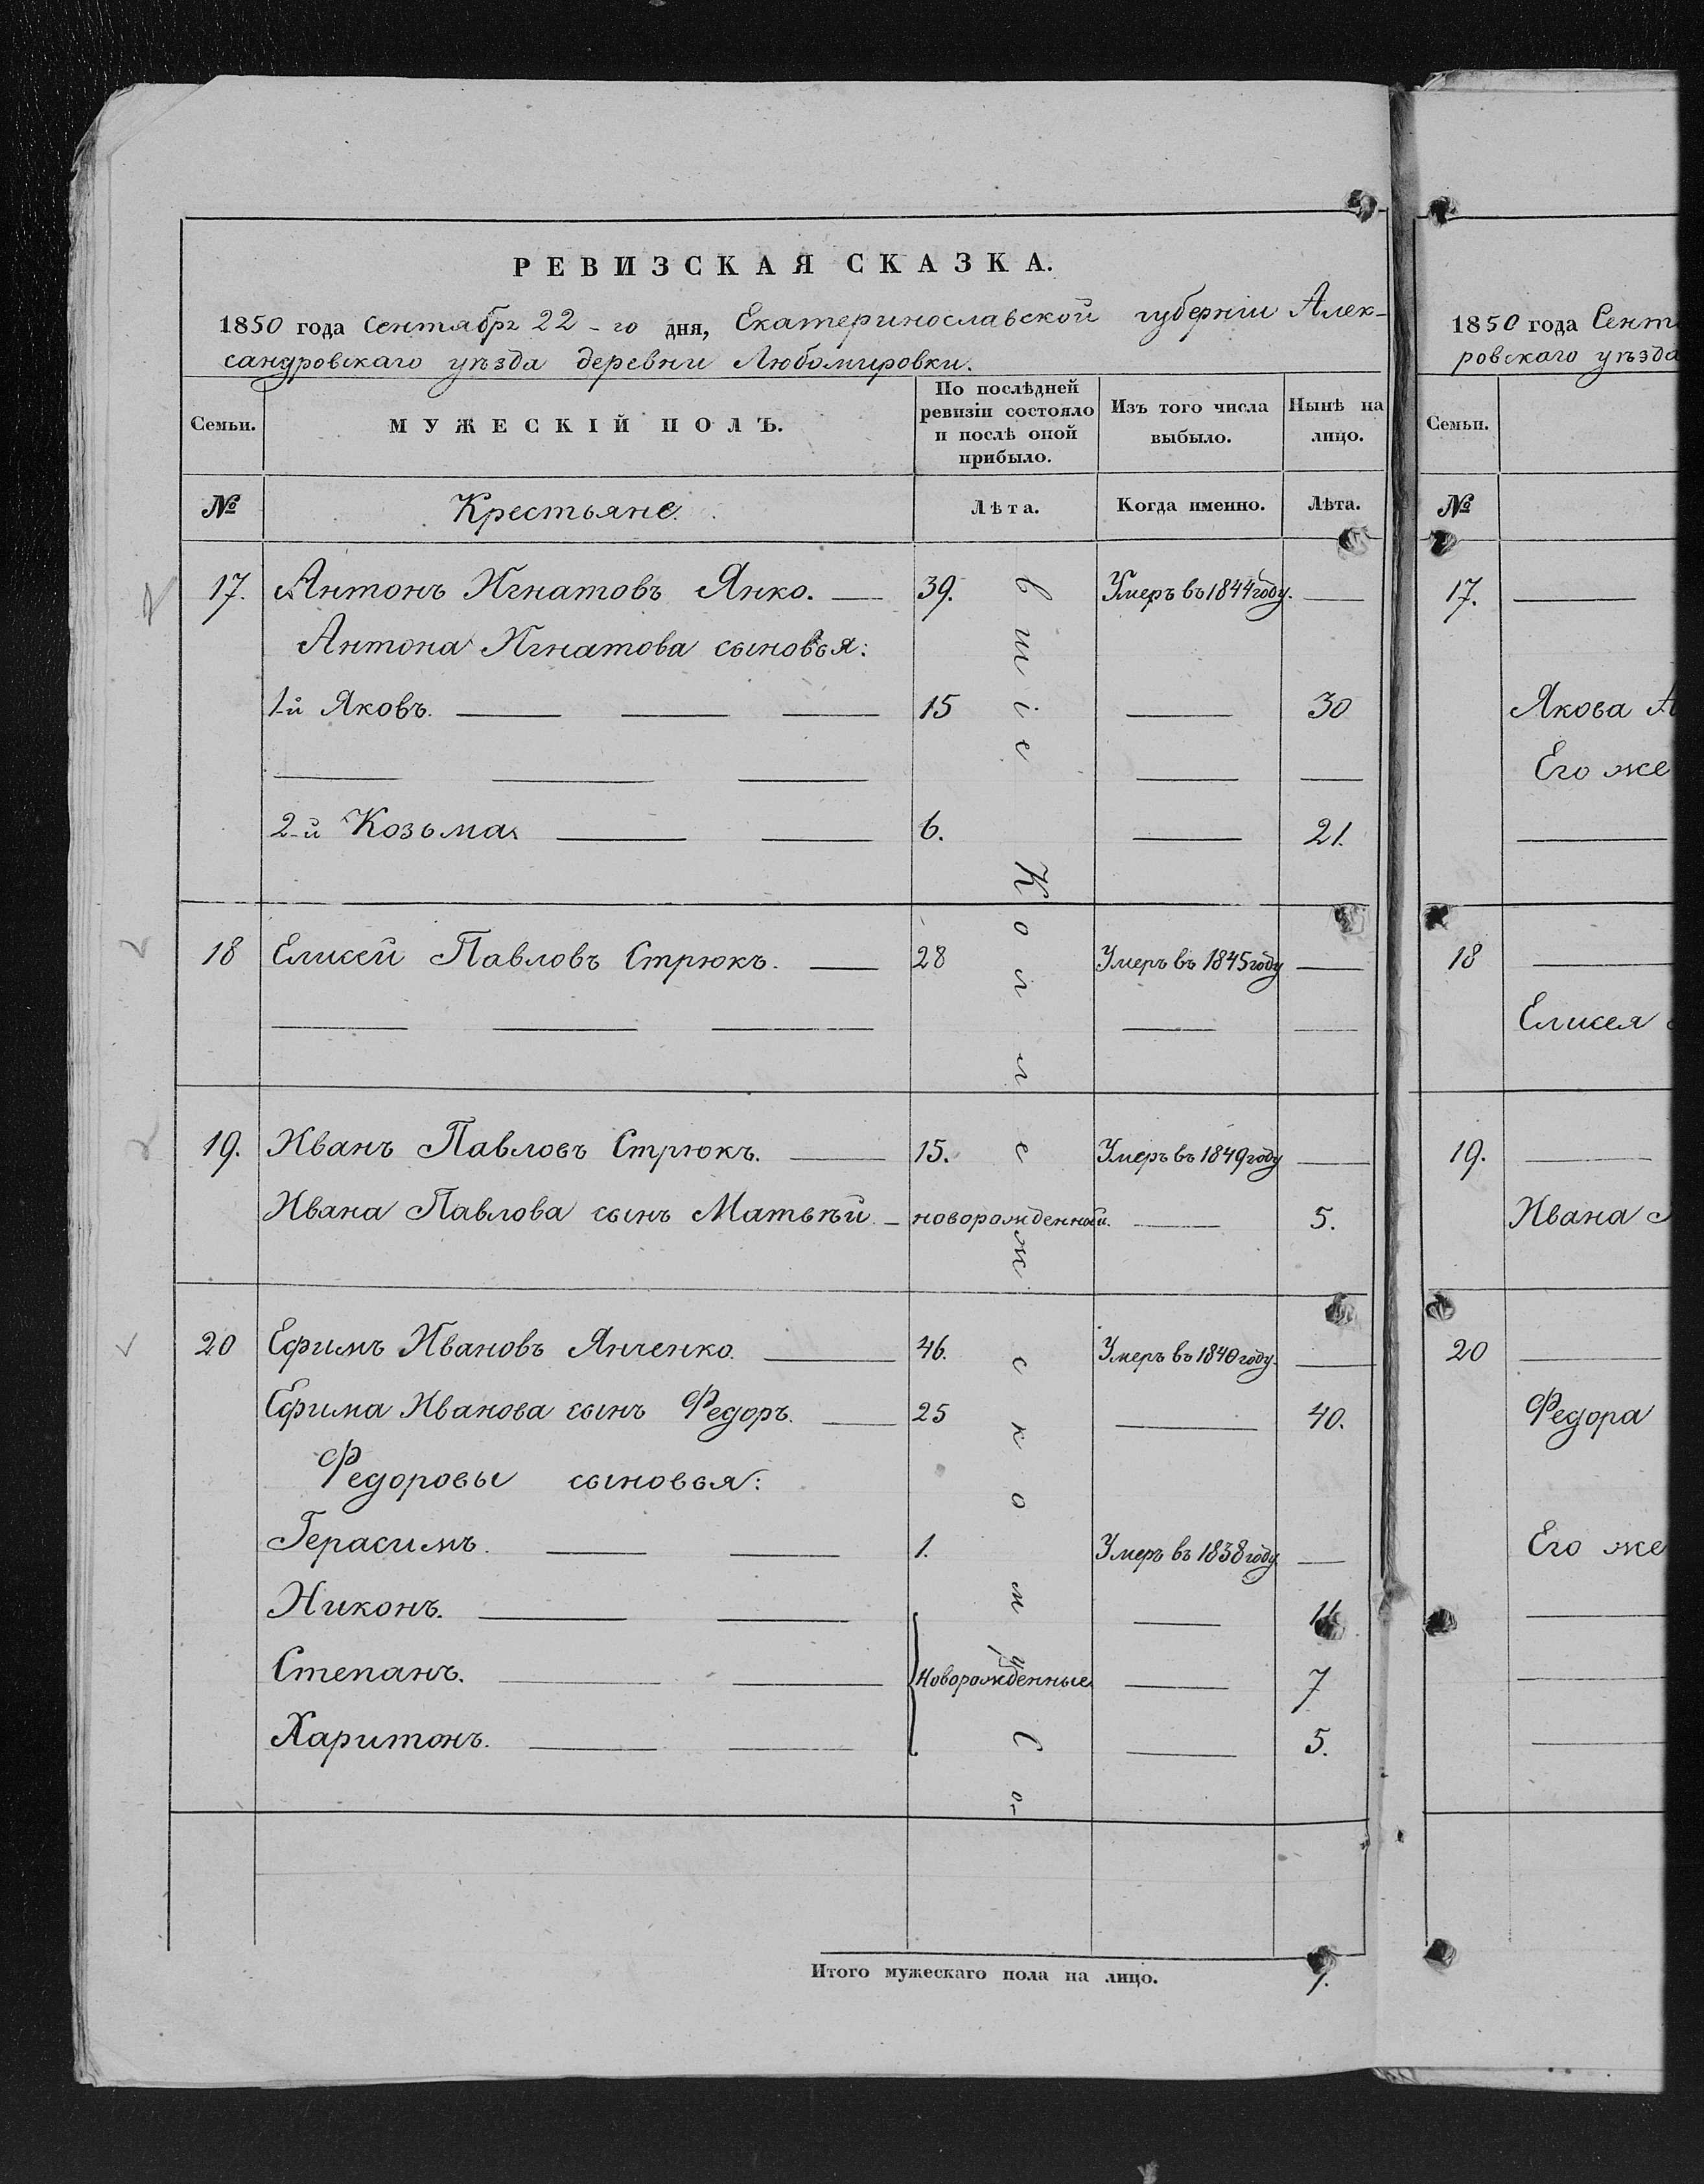 РЕВИЗСКАЯ СКАЗКА.
1850 года Сентября 22-го дня, Екатеринославской губерніи Алек-
сандровскаго уѣзда деревни Любомировки.
Семьи. МУЖЕСКІЙ ПОЛЪ. По послѣдней ревизіи состояло и послѣ оной прибыло. Изъ того числа выбыло. Нынѣ на лицо.
№ Крестьяне. Лѣта. Когда именно. Лѣта.
17. Антонъ Игнатовъ Янко. — 39. Умеръ въ 1844 году. —
Антона Игнатова сыновья:
1-й Яковъ. — — — 15 — 30
— — — — —
2-й Козьма — — 6. — 21.
18 Елисей Павловъ Стрюкъ. — 28 Умеръ въ 1845 году —
— — — — —
19. Иванъ Павловъ Стрюкъ. — 15. Умеръ въ 1849 году —
Ивана Павлова сынъ Матвѣй — новорожденный. — 5.
20 Ефимъ Ивановъ Янченко. — 46. Умеръ въ 1840 году. —
Ефима Иванова сынъ Федоръ. — 25 — 40.
Федоровы сыновья:
Герасимъ. — — 1. Умеръ въ 1838 году —
Никонъ. — — — 11
Степанъ. — — Новорожденные — 7
Харитонъ. — — — 5.
Итого мужескаго пола на лицо. 7.
1850 года Сент
ровскаго уѣзда
Семьи.
№
17. —
Якова А
Его же
—
18 —
Елисея
19. —
Ивана
20 —
Федора
Его же
—
—
—